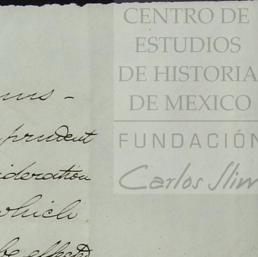 CENTRO DE
ESTUDIOS
DE HISTORIA
DE MEXICO
FUNDACIÓN
Carlos Slim
prudent
ideration
which
be effected